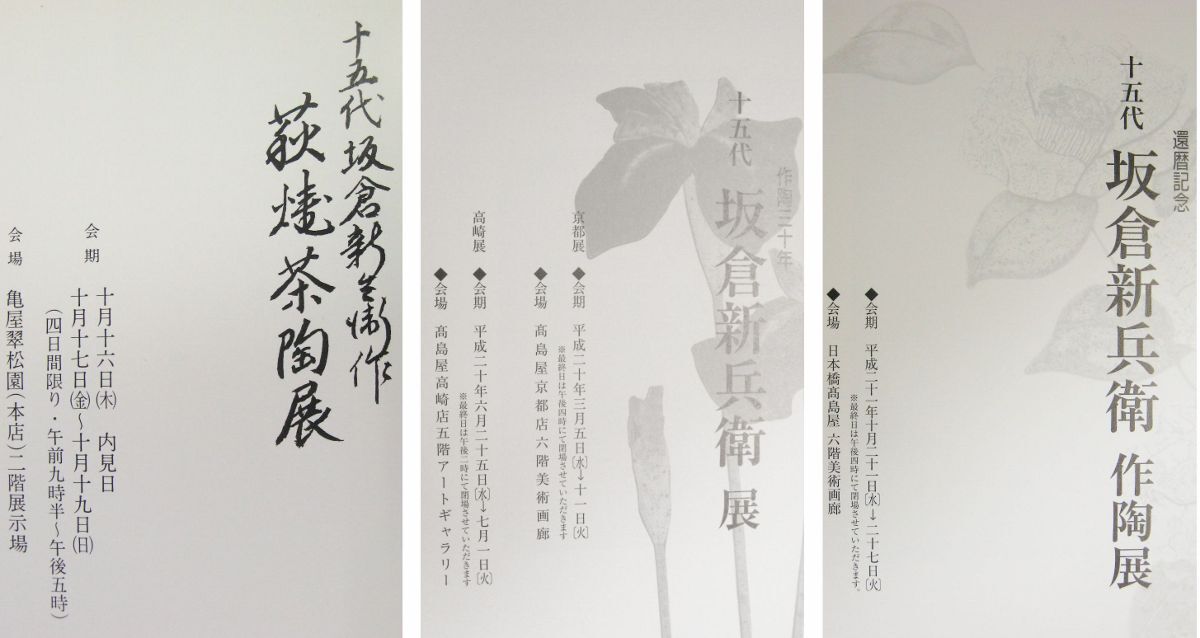 十五代坂倉新兵衛作
萩焼茶陶展
会期
十月十六日㈭　内見日
十月十七日㈮～十月十九日㈰
（四日間限り・午前九時半～午後五時）
会場　亀屋翠松園（本店）二階展示場
作陶三十年
十五代 坂倉新兵衛 展
京都展
◆会期　平成二十年三月五日〔水〕→十一日〔火〕
※最終日は午後四時にて閉場させていただきます
◆会場　髙島屋京都店六階美術画廊
高崎展
◆会期　平成二十年六月二十五日〔水〕→七月一日〔火〕
※最終日は午後二時にて閉場させていただきます
◆会場　髙島屋高崎店五階アートギャラリー
還暦記念
十五代 坂倉新兵衛 作陶展
◆会期　平成二十一年十月二十一日〔水〕→二十七日〔火〕
※最終日は午後四時にて閉場させていただきます。
◆会場　日本橋髙島屋 六階美術画廊